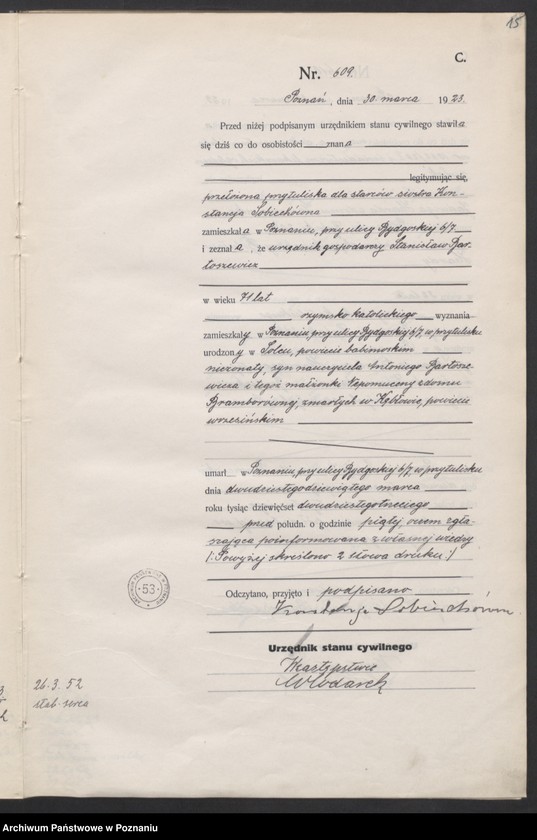 15
C.
Nr. 609.
Poznań, dnia 30 marca 1923.
Przed niżej podpisanym urzędnikiem stanu cywilnego stawiła
się dziś co do osobistości znana
legitymując się,
przełożona przytuliska dla starców siostra Kon-
stancja Sobiechówna
zamieszkała w Poznaniu, przy ulicy Bydgoskiej 6/7
i zeznała, że urzędnik gospodarczy Stanisław Bar-
toszewicz
w wieku 71 lat
rzymsko katolickiego wyznania
zamieszkały w Poznaniu, przy ulicy Bydgoskiej 6/7, w przytulisku
urodzony w Solcu, powiecie babimoskim
nieżonaty, syn nauczyciela Antoniego Bartosze-
wicza i tegoż małżonki Nepomuceny z domu
Bramborówny, zmarłych w Kębłowie, powiecie
umarł w Poznaniu, przy ulicy Bydgoskiej 6/7 w przytulisku
dnia dwudziestego dziewiątego marca
roku tysiąc dziewięćset dwudziestego trzeciego
przed połudn. o godzinie piątej, o czem zgła-
szająca poinformowana z własnej wiedzy
/: Powyżej skreślono 2 słowa druku /
Odczytano, przyjęto i podpisano
Konstancja Sobiechówna
Urzędnik stanu cywilnego
W zastępstwie
Włodarek
53
26.3.52
słab. serca
Archiwum Państwowe w Poznaniu